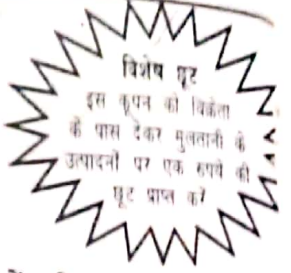 विशेष छूट
इस कूपन को विक्रेता
के पास देकर मुलतानी के
उत्पादनों पर एक रुपये की
छूट प्राप्त करें